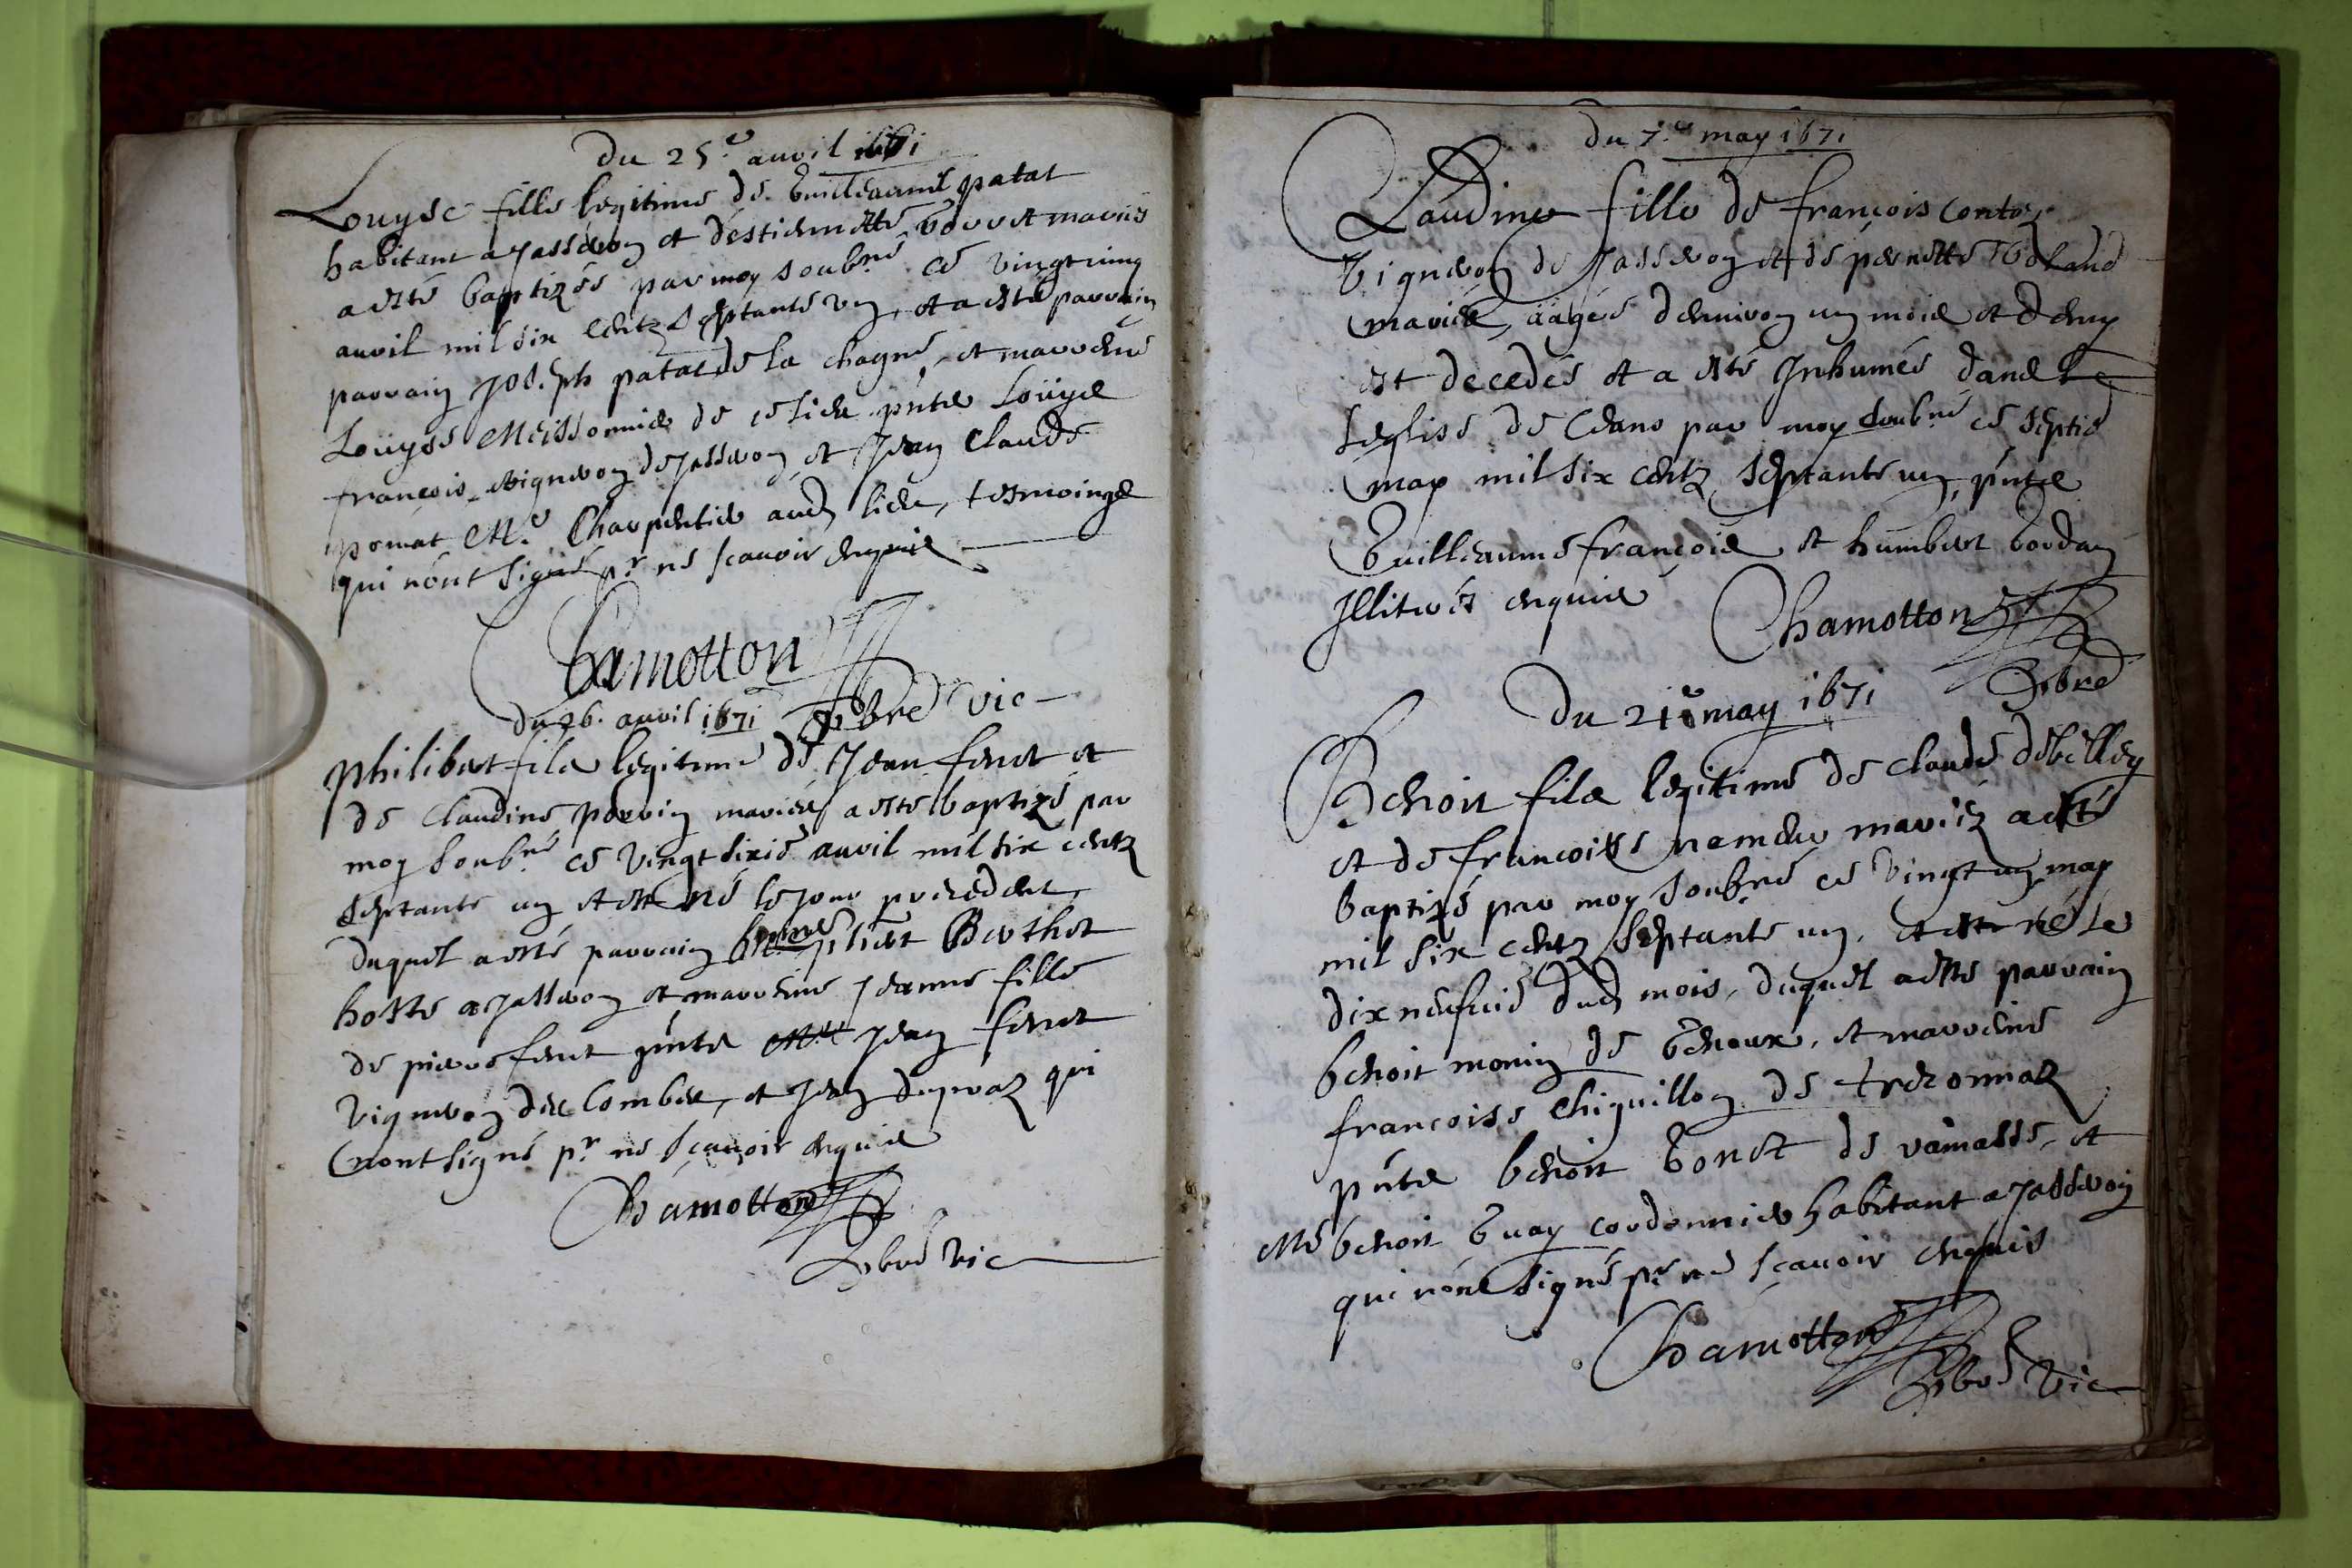 Du 25.e avril 1671
Louyse fille legitime de Guilleaume patat
habitant a Jasseron et d'estiennette  mariés
a esté baptizée par moy soubné ce vingtcinq
avril mil six centz septante un, et a esté parrain
parrain Joseph patat de la chagne, et marreine
Louyse Meissonnier de ce lieu pñts Louys
françois vigneron de Jasseron et Jean Claude
pomat Me Charpentier aud lieu, tesmoings
qui n'ont signé pr ne scavoir enquis
Chamotton
pbre vic
du 26. avril 1671
philibert fils legitime de Jean feret et
de Claudine perrin mariés a esté baptizé par
moy soubné ce vingt sixie avril mil six centz
septante un et est né le jour precedent
duquel a esté parrain phert Berthet
hoste a Jasseron et marreine Jeanne fille
de pierre feret pñts Jean feret
vigneron des Combes, et Jean dupraz qui
n'ont signé pr ne scavoir enquis
Chamotton
pbre vic
du 7.e may 1671
Claudine fille de françois
vigneron de Jasseron et de pernette
mariés, aagée d'environ un mois et demy
est decedée et a esté Inhumée dans
Leglise de ceans par moy soubné ce septie
may mil six centz septante un, pñts
Guilleaume françois et humbert
Illiterés enquis
Chamotton
pbre
Du 21e may 1671
Benoit fils legitime de Claude debelley
et de francoise mariéz a esté
baptizé par moy soubné ce vingt un may
mil six centz septante un, et est né le
dix neufvie dud mois, duquel a esté parrain
benoit monin de , et marreine
francoise chiquillon de treconnaz
pñts benoit de , et
Me benoit Guay cordonnier habitant a Jasseron
qui n'ont signé pr ne scavoir enquis
Chamotton
pbre vic